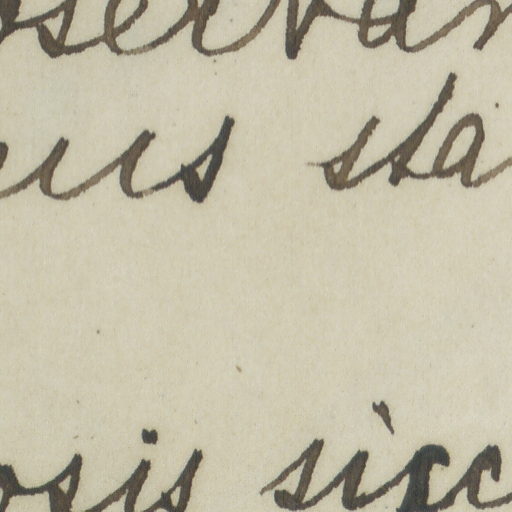 servan
us sta
osis sicc